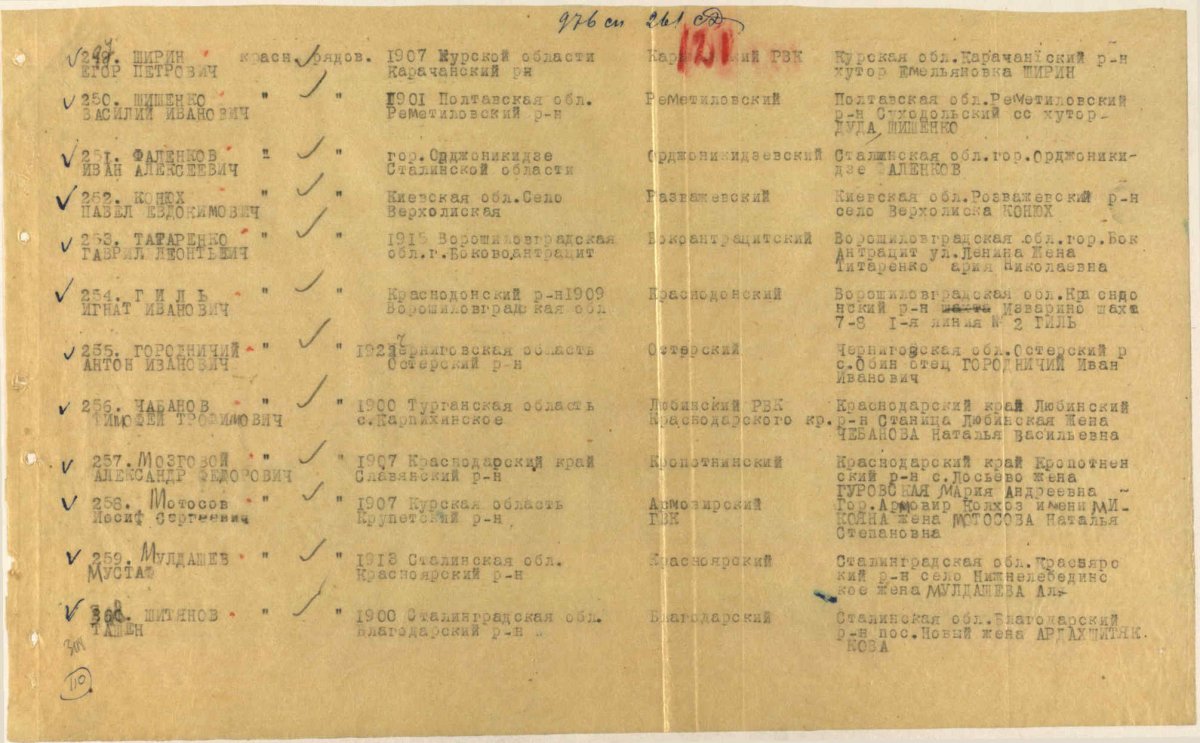 976 сп 261 сд
121
249. ШИРИН красн.рядов. 1907 Курской области РВК Курская обл.Карачанский р-н
ЕГОР ПЕТРОВИЧ Карачанский рн хутор Емельяновка ШИРИН
250. ШИШЕНКО " " 1901 Полтавская обл. Реметиловский Полтавская обл.Реметиловский
ВАСИЛИЙ ИВАНОВИЧ Реметиловский р-н р-н Суходольский сс хутор
ДУДА ШИШЕНКО
251. ФАЛЕНКОВ " " гор.Орджоникидзе Орджоникидзевский Сталинская обл.гор.Орджоники-
ИВАН АЛЕКСЕЕВИЧ Сталинской области дзе ФАЛЕНКОВ
252. КОНЮХ " " Киевская обл.Село Разважевский Киевская обл.Розважевский р-н
ПАВЕЛ ЕВДОКИМОВИЧ Верхолиская село Верхолиска КОНЮХ
253. ТАТАРЕНКО " " 1915 Ворошиловградская Бокоантрацитский Ворошиловградская обл.гор.Бок
ГАВРИЛ ЛЕОНТЬЕВИЧ обл.г.Боковоантрацит Антрацит ул.Ленина Жена
Титаренко ария Николаевна
254. Г И Л Ь " " Краснодонский р-н1909 Краснодонский Ворошиловградская обл.Красндо
ИГНАТ ИВАНОВИЧ Ворошиловградская обл нский р-н шахта Изварино шахта
7-8 1-я линия № 2 ГИЛЬ
255. ГОРОДНИЧИЙ " " Черниговская область Остерский Черниговская обл.Остерский р
АНТОН ИВАНОВИЧ Остерский р-н с.Обин отец ГОРОДНИЧИЙ Иван
Иванович
256. ЧАБАНОВ " " 1900 Турганская область Любинский РВК Краснодарский край Любинский
ТИМОФЕЙ ТРОФИМОВИЧ с.Карпихинское Краснодарского кр. р-н Станица Любинская Жена
ЧЕБАНОВА Наталья Васильевна
257. МОЗГОВОЙ " " 1907 Краснодарский край Кропотнинский Краснодарский край Кропотнен
АЛЕКСАНДР ФЕДОРОВИЧ Славянский р-н ский р-н с.Лосьево жена
ГУРОВСКАЯ Мария Андреевна
258. Мотосов " " 1907 Курская область Армовирский Гор.Армовир Колхоз имени МИ-
Иосиф Сергеевич Крупетский р-н ГВК КОЯНА жена МОТОСОВА Наталья
Степановна
259. МУЛДАШЕВ " " 1913 Сталинская обл. Красноярский Сталинградская обл.Краснярс
МУСТАФ Красноярский р-н кий р-н село Нижнелебединс
кое жена МУЛДАШЕВА Ал
ШИТЯНОВ " " 1900 Сталинградская обл. Благодарский Сталинская обл.Благодарский
ТАШЕН Благодарский р-н р-н пос.Новый жена АРДАХШИТЯК
КОВА
110